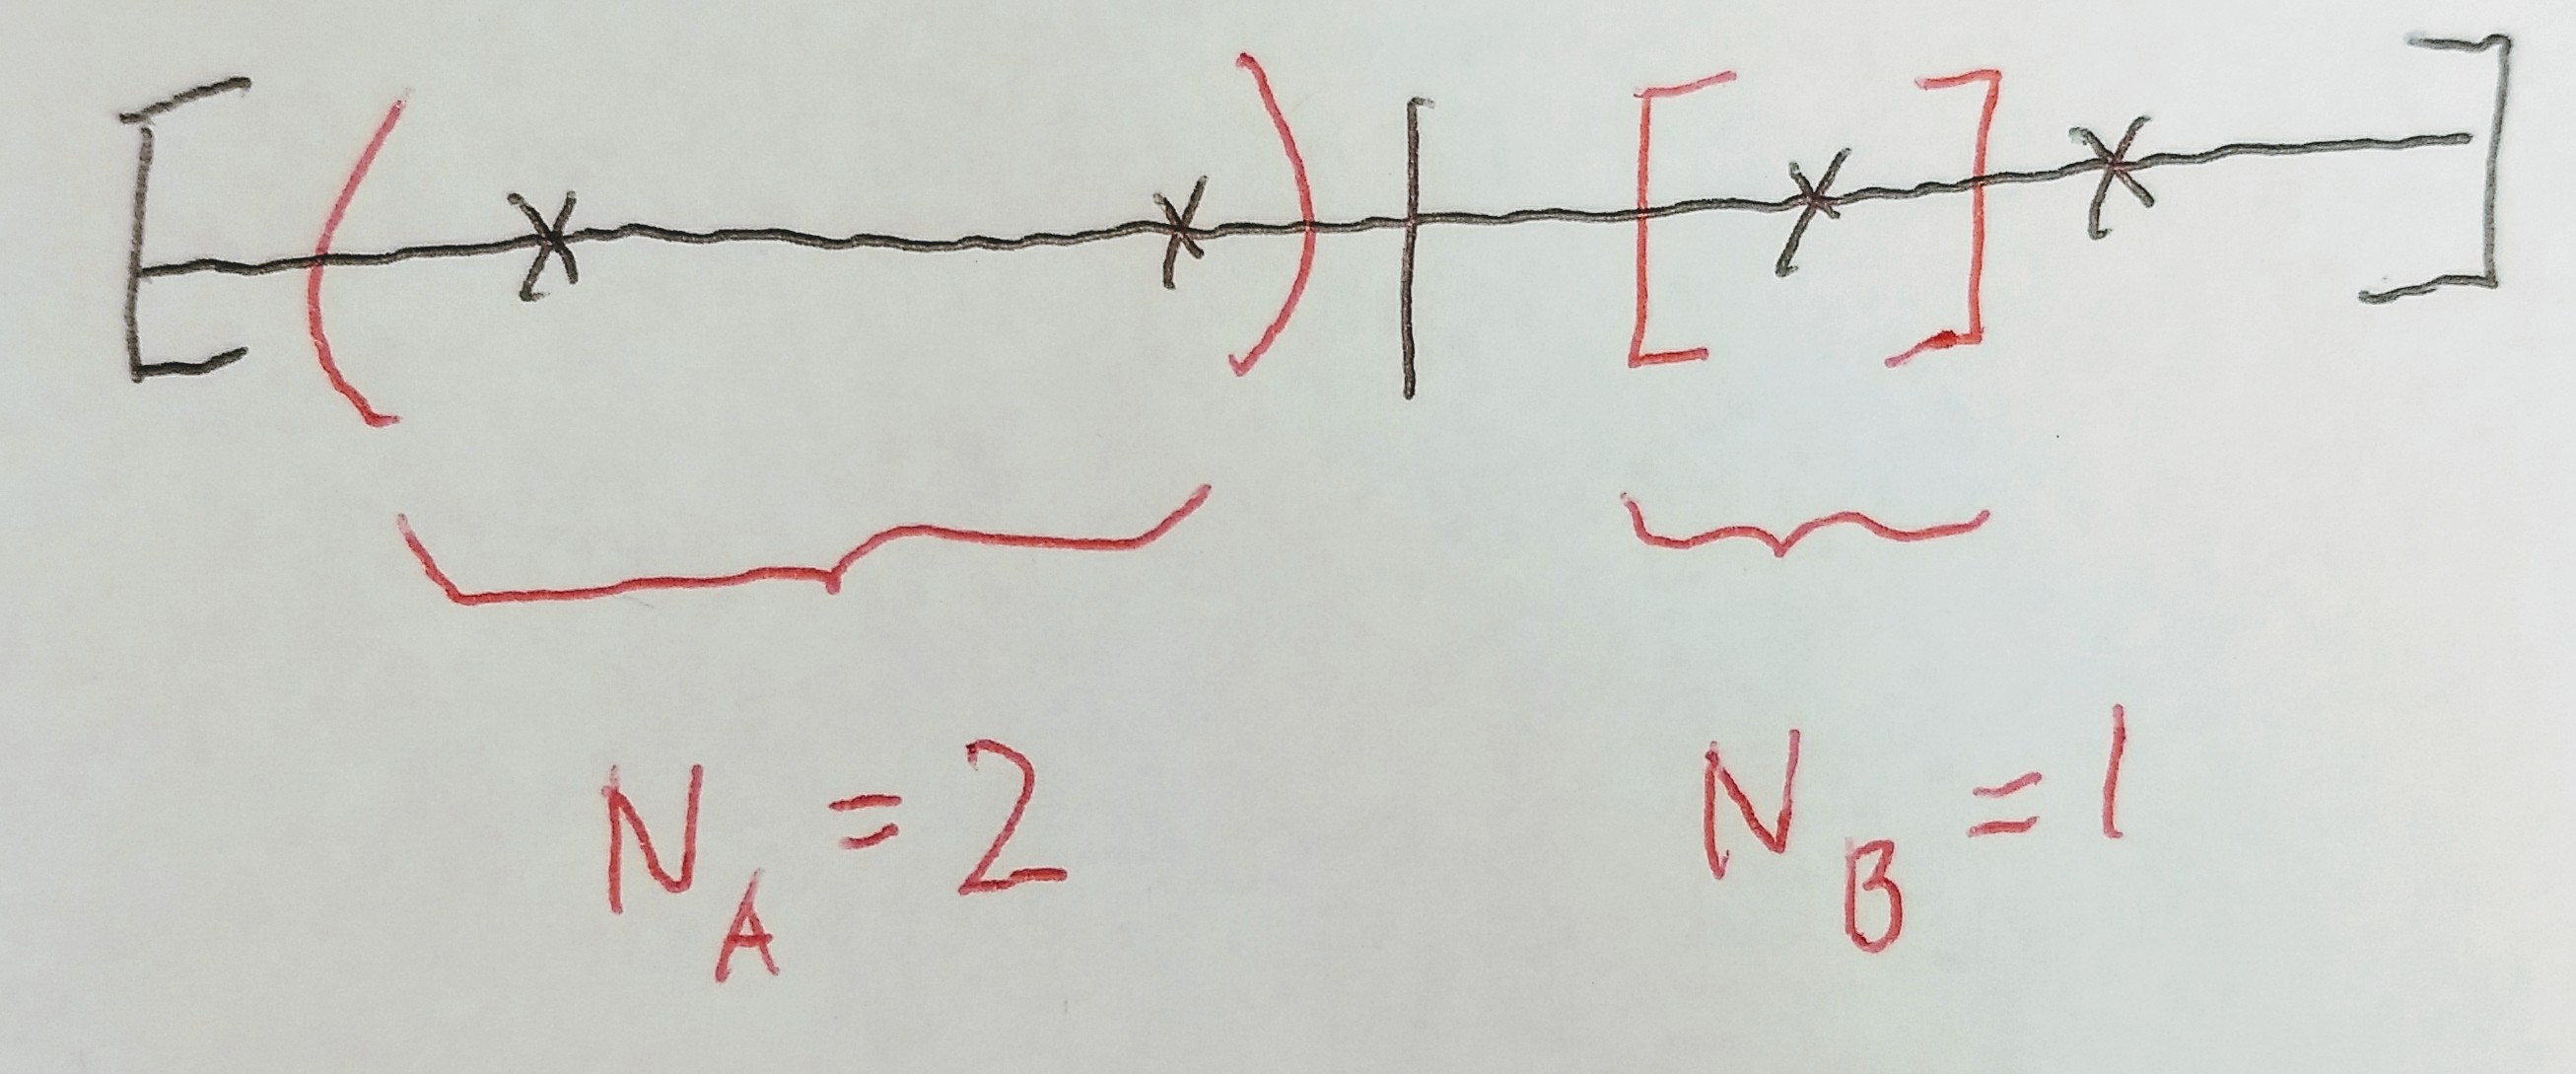 N_A = 2 N_B = 1